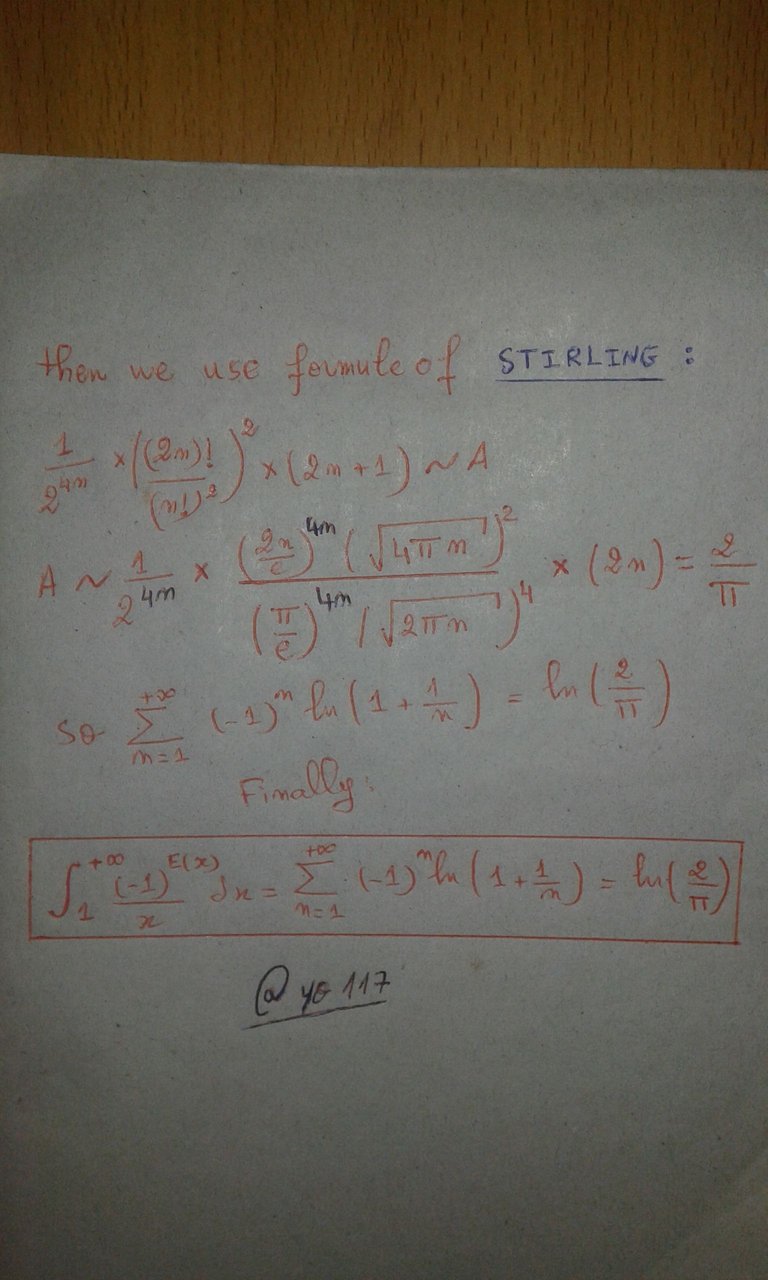 then we use formule of STIRLING :
1/2^{4n} × ((2n)!/(n!)^2)^2 × (2n+1) ~ A
A ~ 1/2^{4n} × (2n/e)^{4n} (√(4πn))^2 / (π/e)^{4n} (√(2πn))^4 × (2n) = 2/π
so ∑_{n=1}^{+∞} (-1)^n ln(1 + 1/n) = ln(2/π)
Finally:
∫_1^{+∞} (-1)^{E(x)}/x dx = ∑_{n=1}^{+∞} (-1)^n ln(1 + 1/n) = ln(2/π)
@yo 117